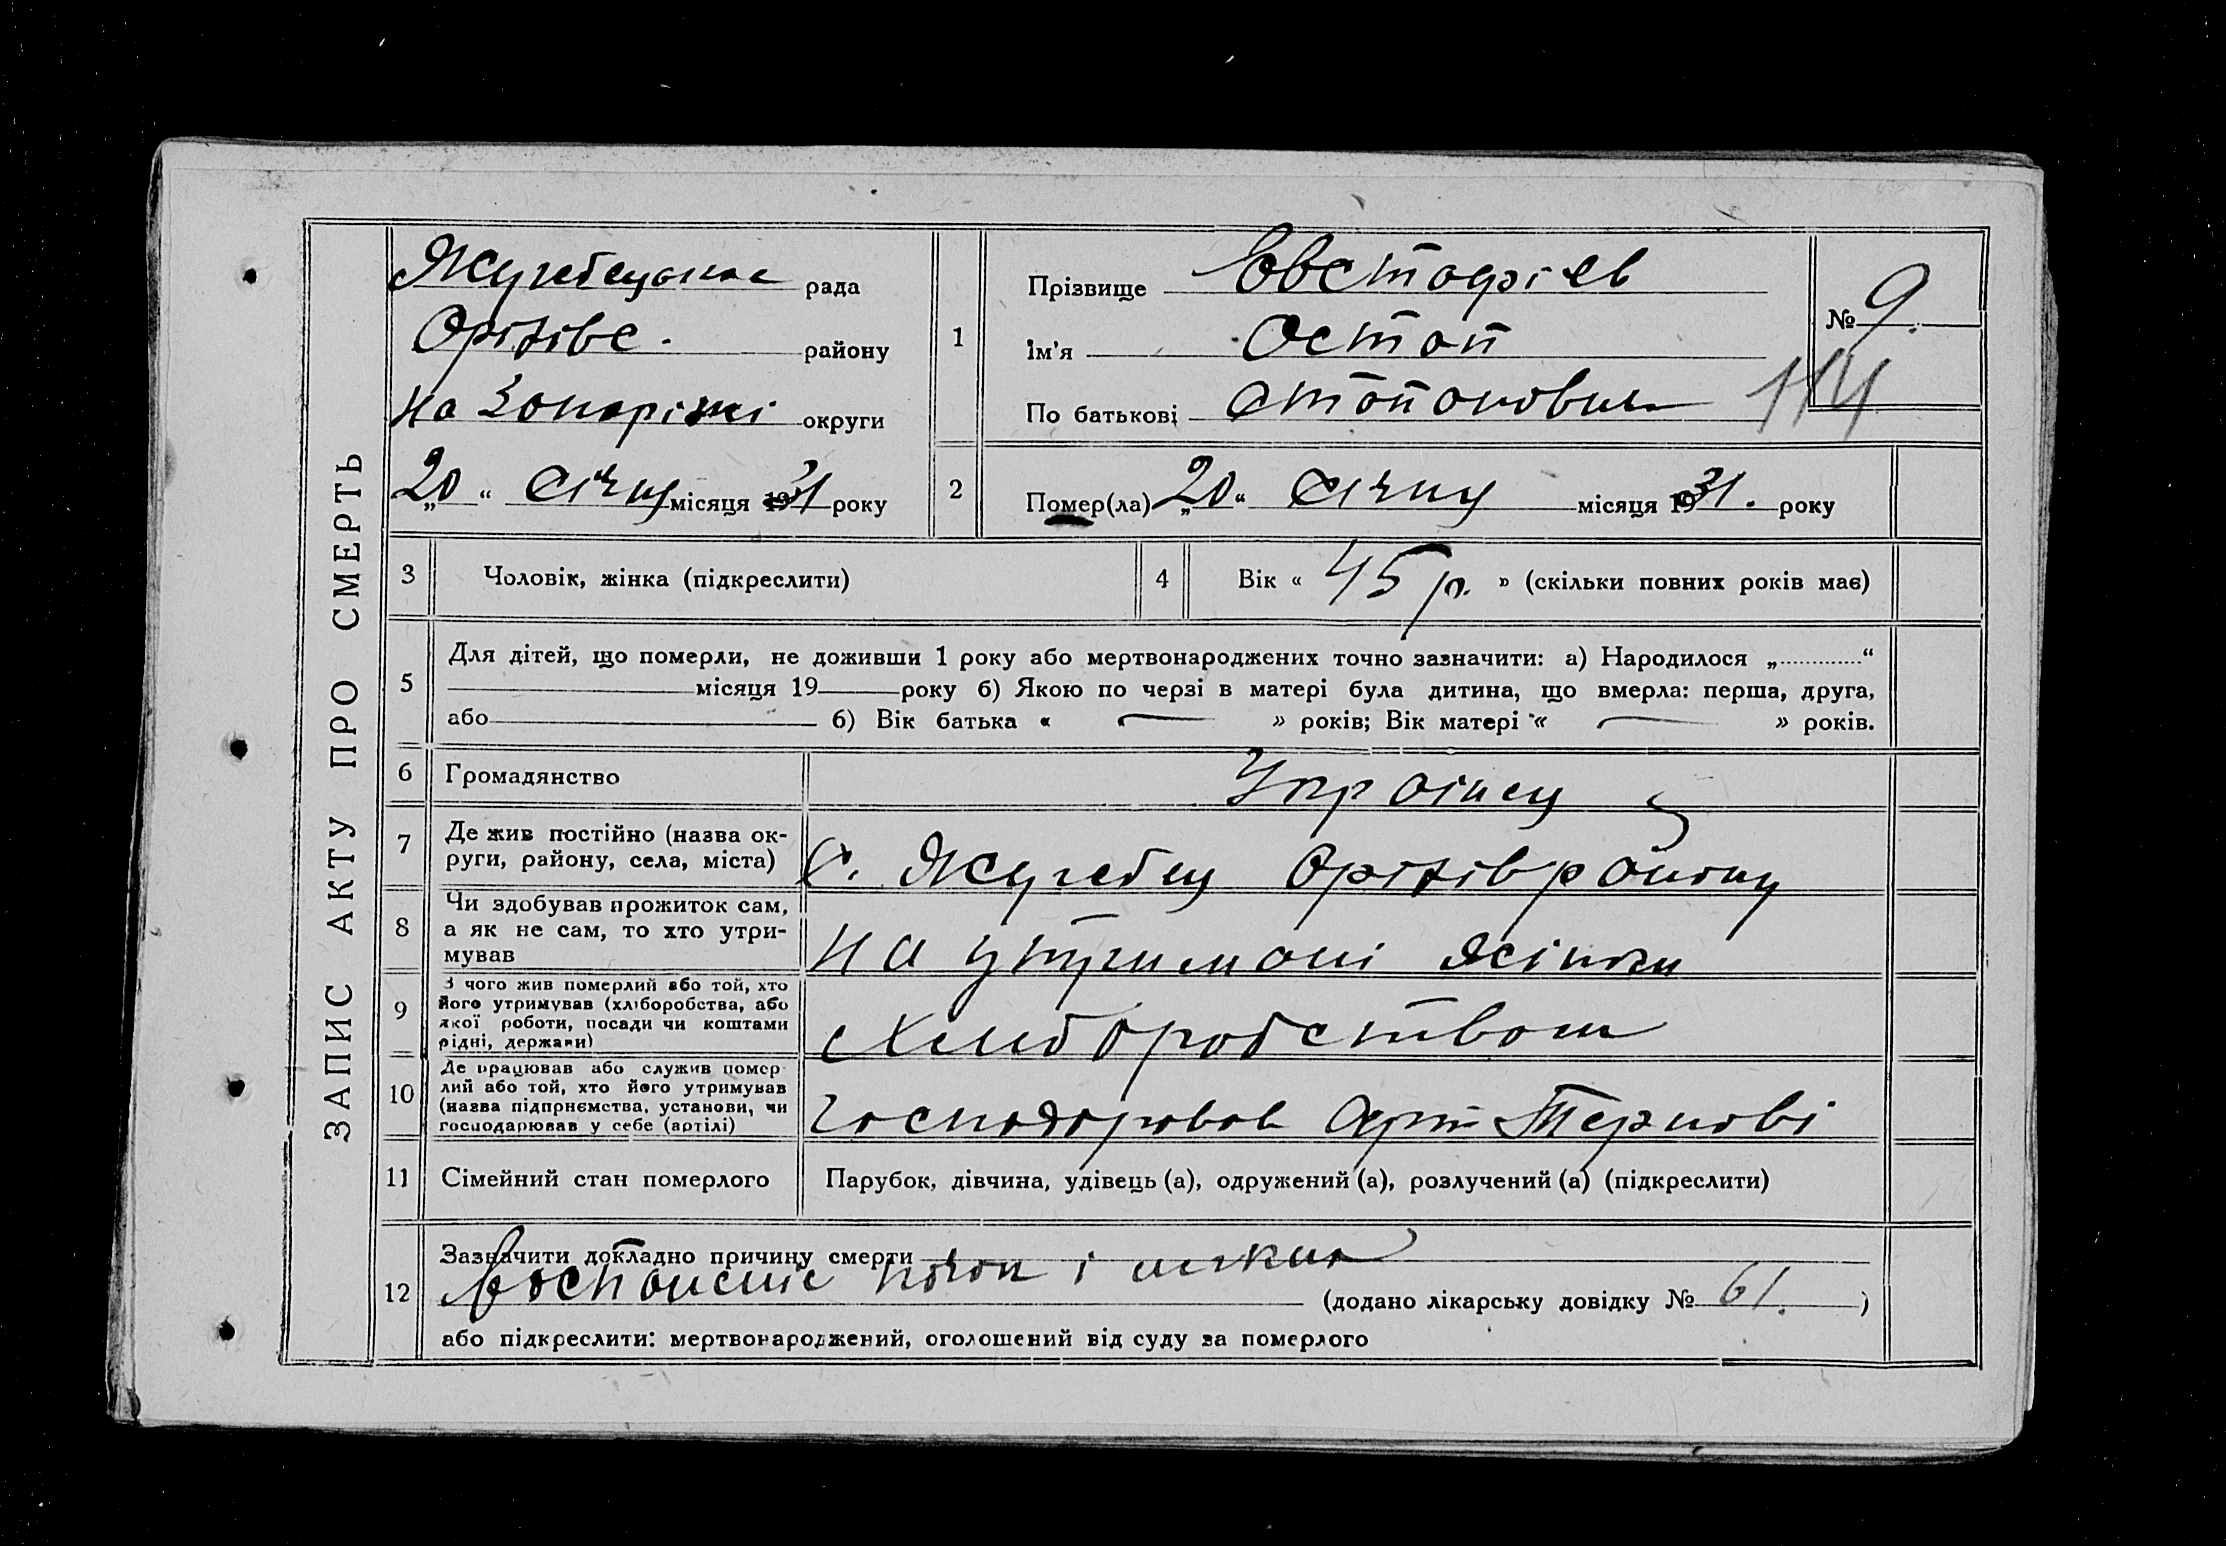 ЗАПИС АКТУ ПРО СМЕРТЬ
Жеребецька рада
Оріхівс. району
На Запоріжжі округи
„20“ січня місяця 1931 року
1
Прізвище Євстафієв
Ім'я Остап
По батькові Остапович
№ 9.
114
2
Помер(ла) „20“ січня місяця 1931. року
3 Чоловік, жінка (підкреслити)
4 Вік « 45 р. » (скільки повних років має)
5 Для дітей, що померли, не доживши 1 року або мертвонароджених точно зазначити: а) Народилося „ “
місяця 19 року б) Якою по черзі в матері була дитина, що вмерла: перша, друга,
або б) Вік батька « — » років; Вік матері « — » років.
6 Громадянство Українец
7 Де жив постійно (назва ок-
руги, району, села, міста) С. Жеребец Оріхів району
8 Чи здобував прожиток сам,
а як не сам, то хто утри-
мував
На утримані жінки
9 З чого жив померлий або той, хто
його утримував (хліборобства, або
якої роботи, посади чи коштами
рідні, держави)
Хлиборобством
10 Де працював або служив помер-
лий або той, хто його утримував
(назва підприємства, установи, чи
господарював у себе (артілі)
Господарював Арт
11 Сімейний стан померлого Парубок, дівчина, удівець (а), одружений (а), розлучений (а) (підкреслити)
12 Зазначити докладно причину смерти
і
(додано лікарську довідку № 61. )
або підкреслити: мертвонароджений, оголошений від суду за померлого